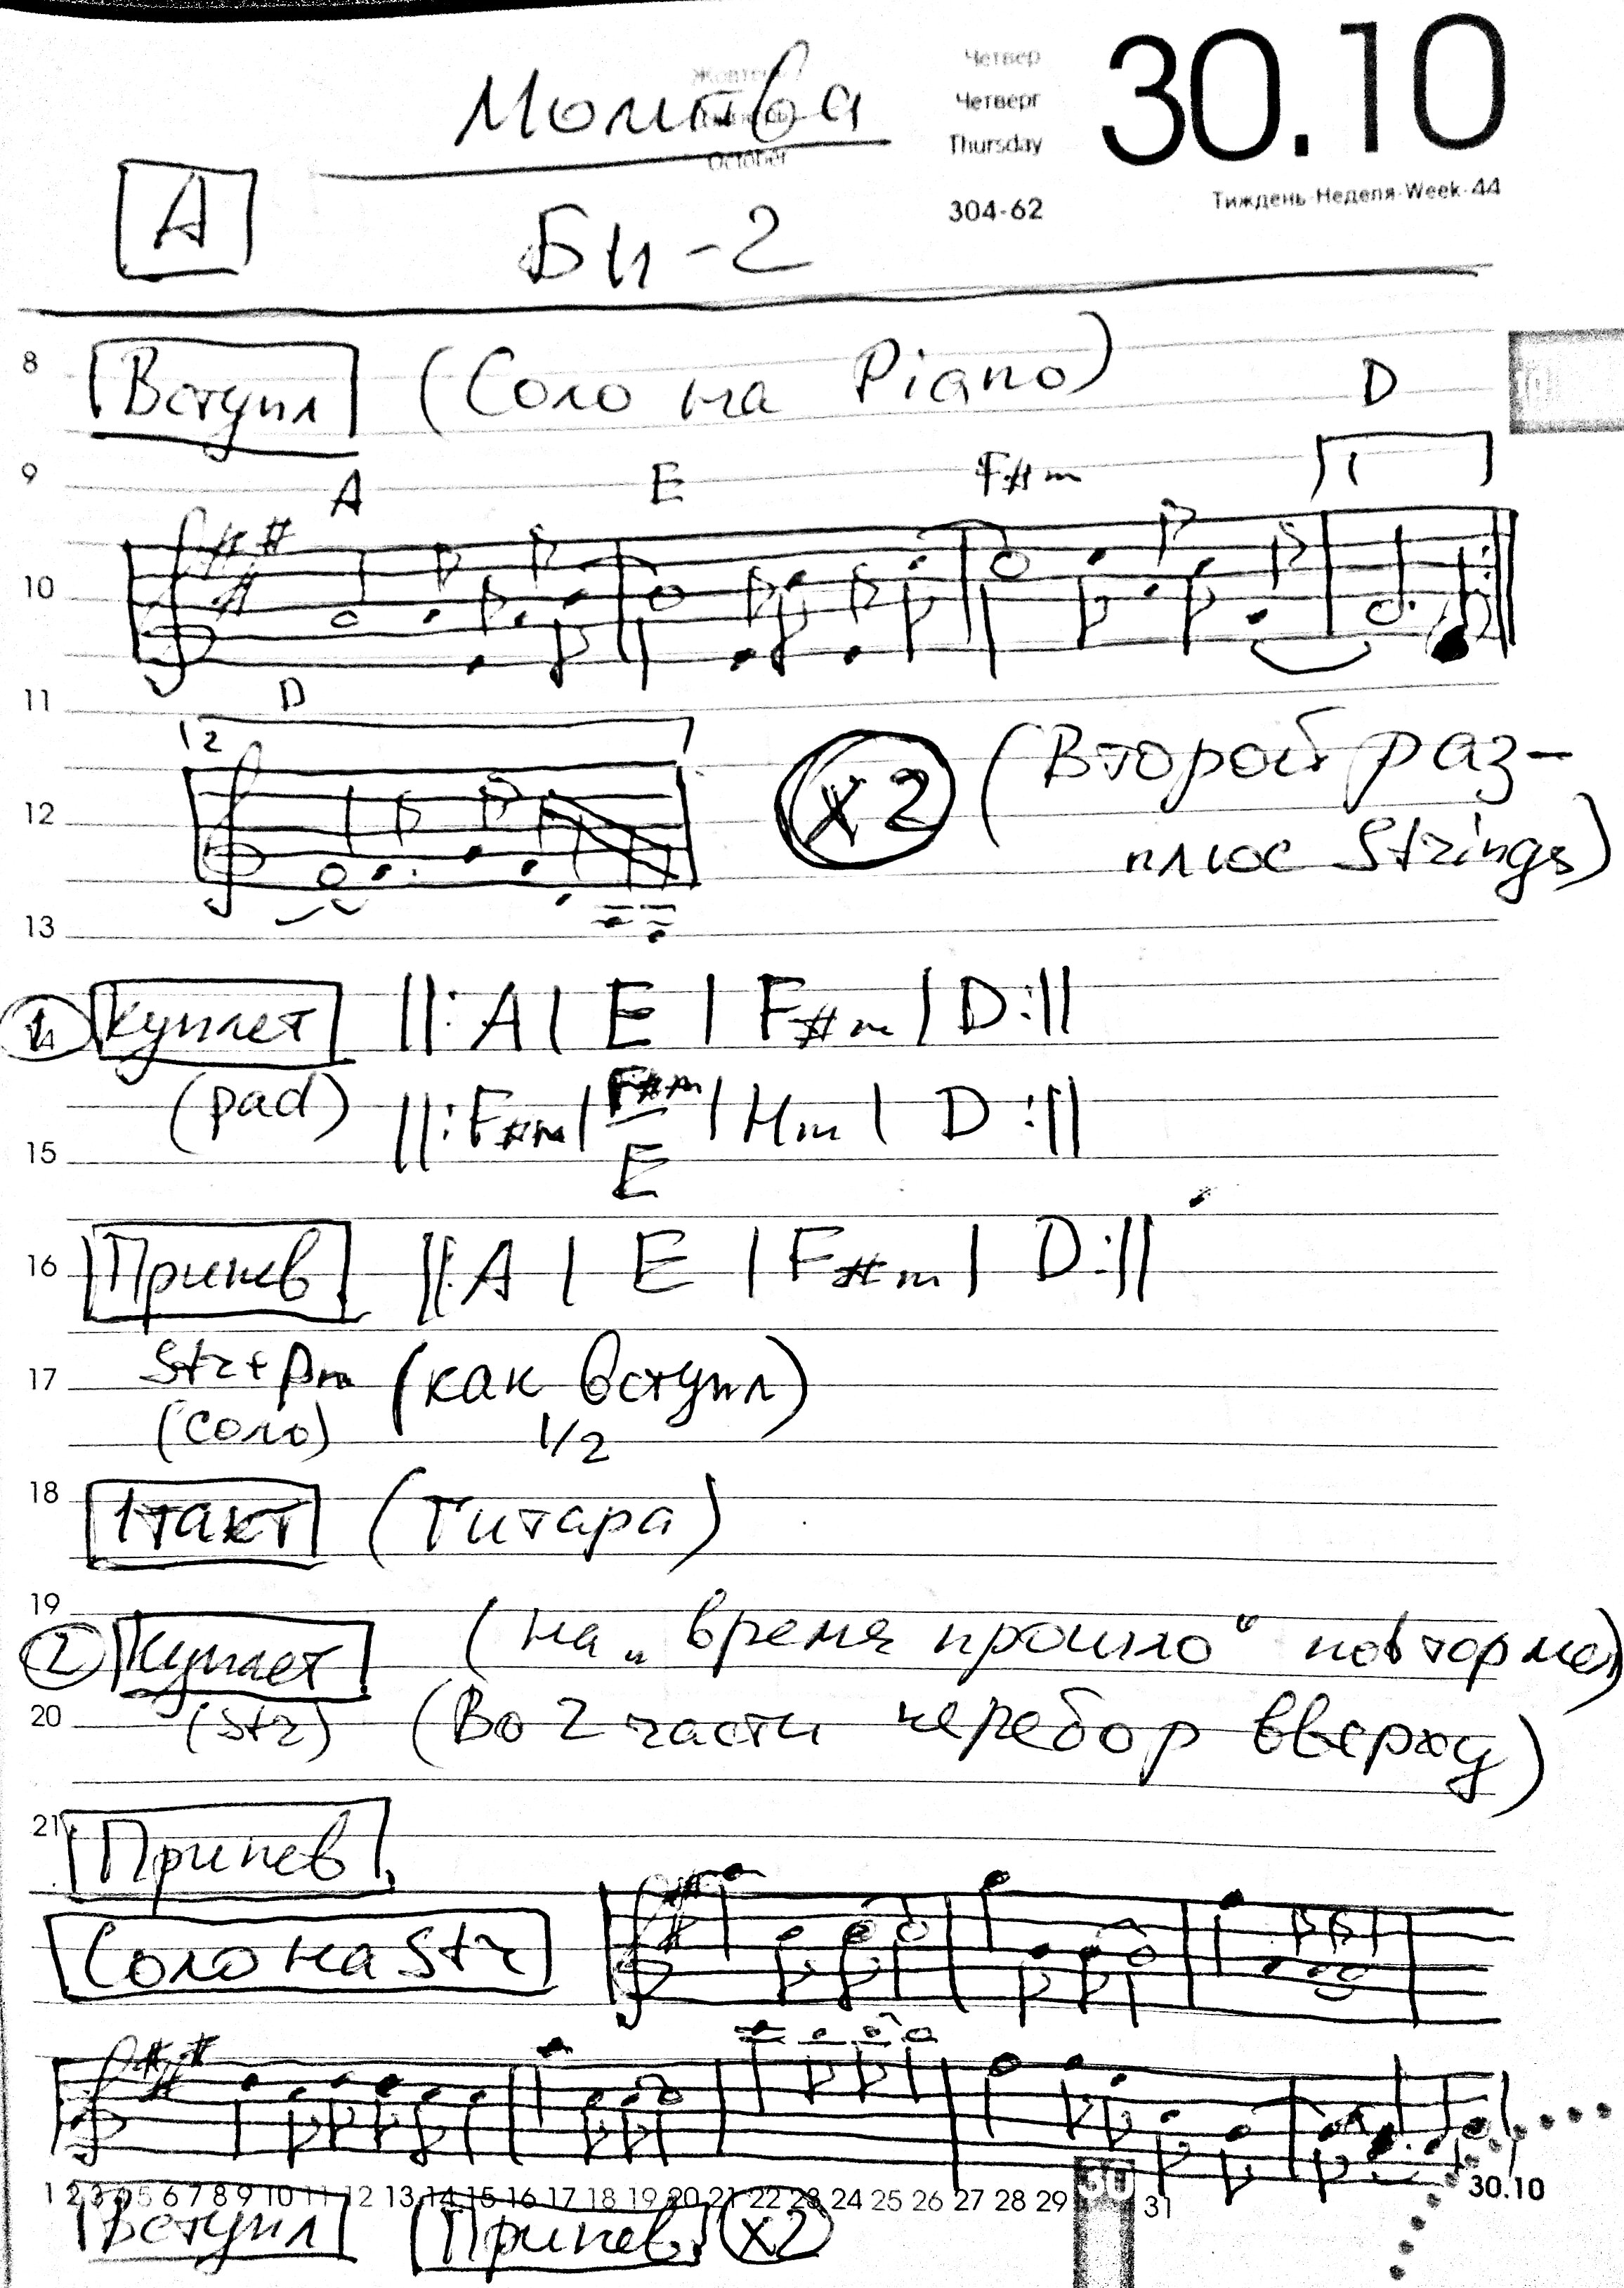 Жовтень
October
Четвер
Четверг
Thursday
304-62
30.10
Тиждень·Неделя·Week·44
Молитва
A
Би-2
8
Вступл (Соло на Piano) D
9
A E F#m 1
10
11
D
2
12
X2 (Второй раз-
плюс Strings)
13
1 Куплет ||: A | E | F#m | D :||
(pad) ||: F#m | F#m/E | Hm | D :||
15
16 Припев ||: A | E | F#m | D :||
17 Str+Pn (как вступл)
(соло) 1/2
18 1такт (Гитара)
19
2 Куплет (на „время прошло“ повтор мел)
20 (Str) (Во 2 части перебор вверх)
21 Припев
Соло на Str
1 2 3 4 5 6 7 8 9 10 11 12 13 14 15 16 17 18 19 20 21 22 23 24 25 26 27 28 29 30 31
30.10
Вступл Припев X2